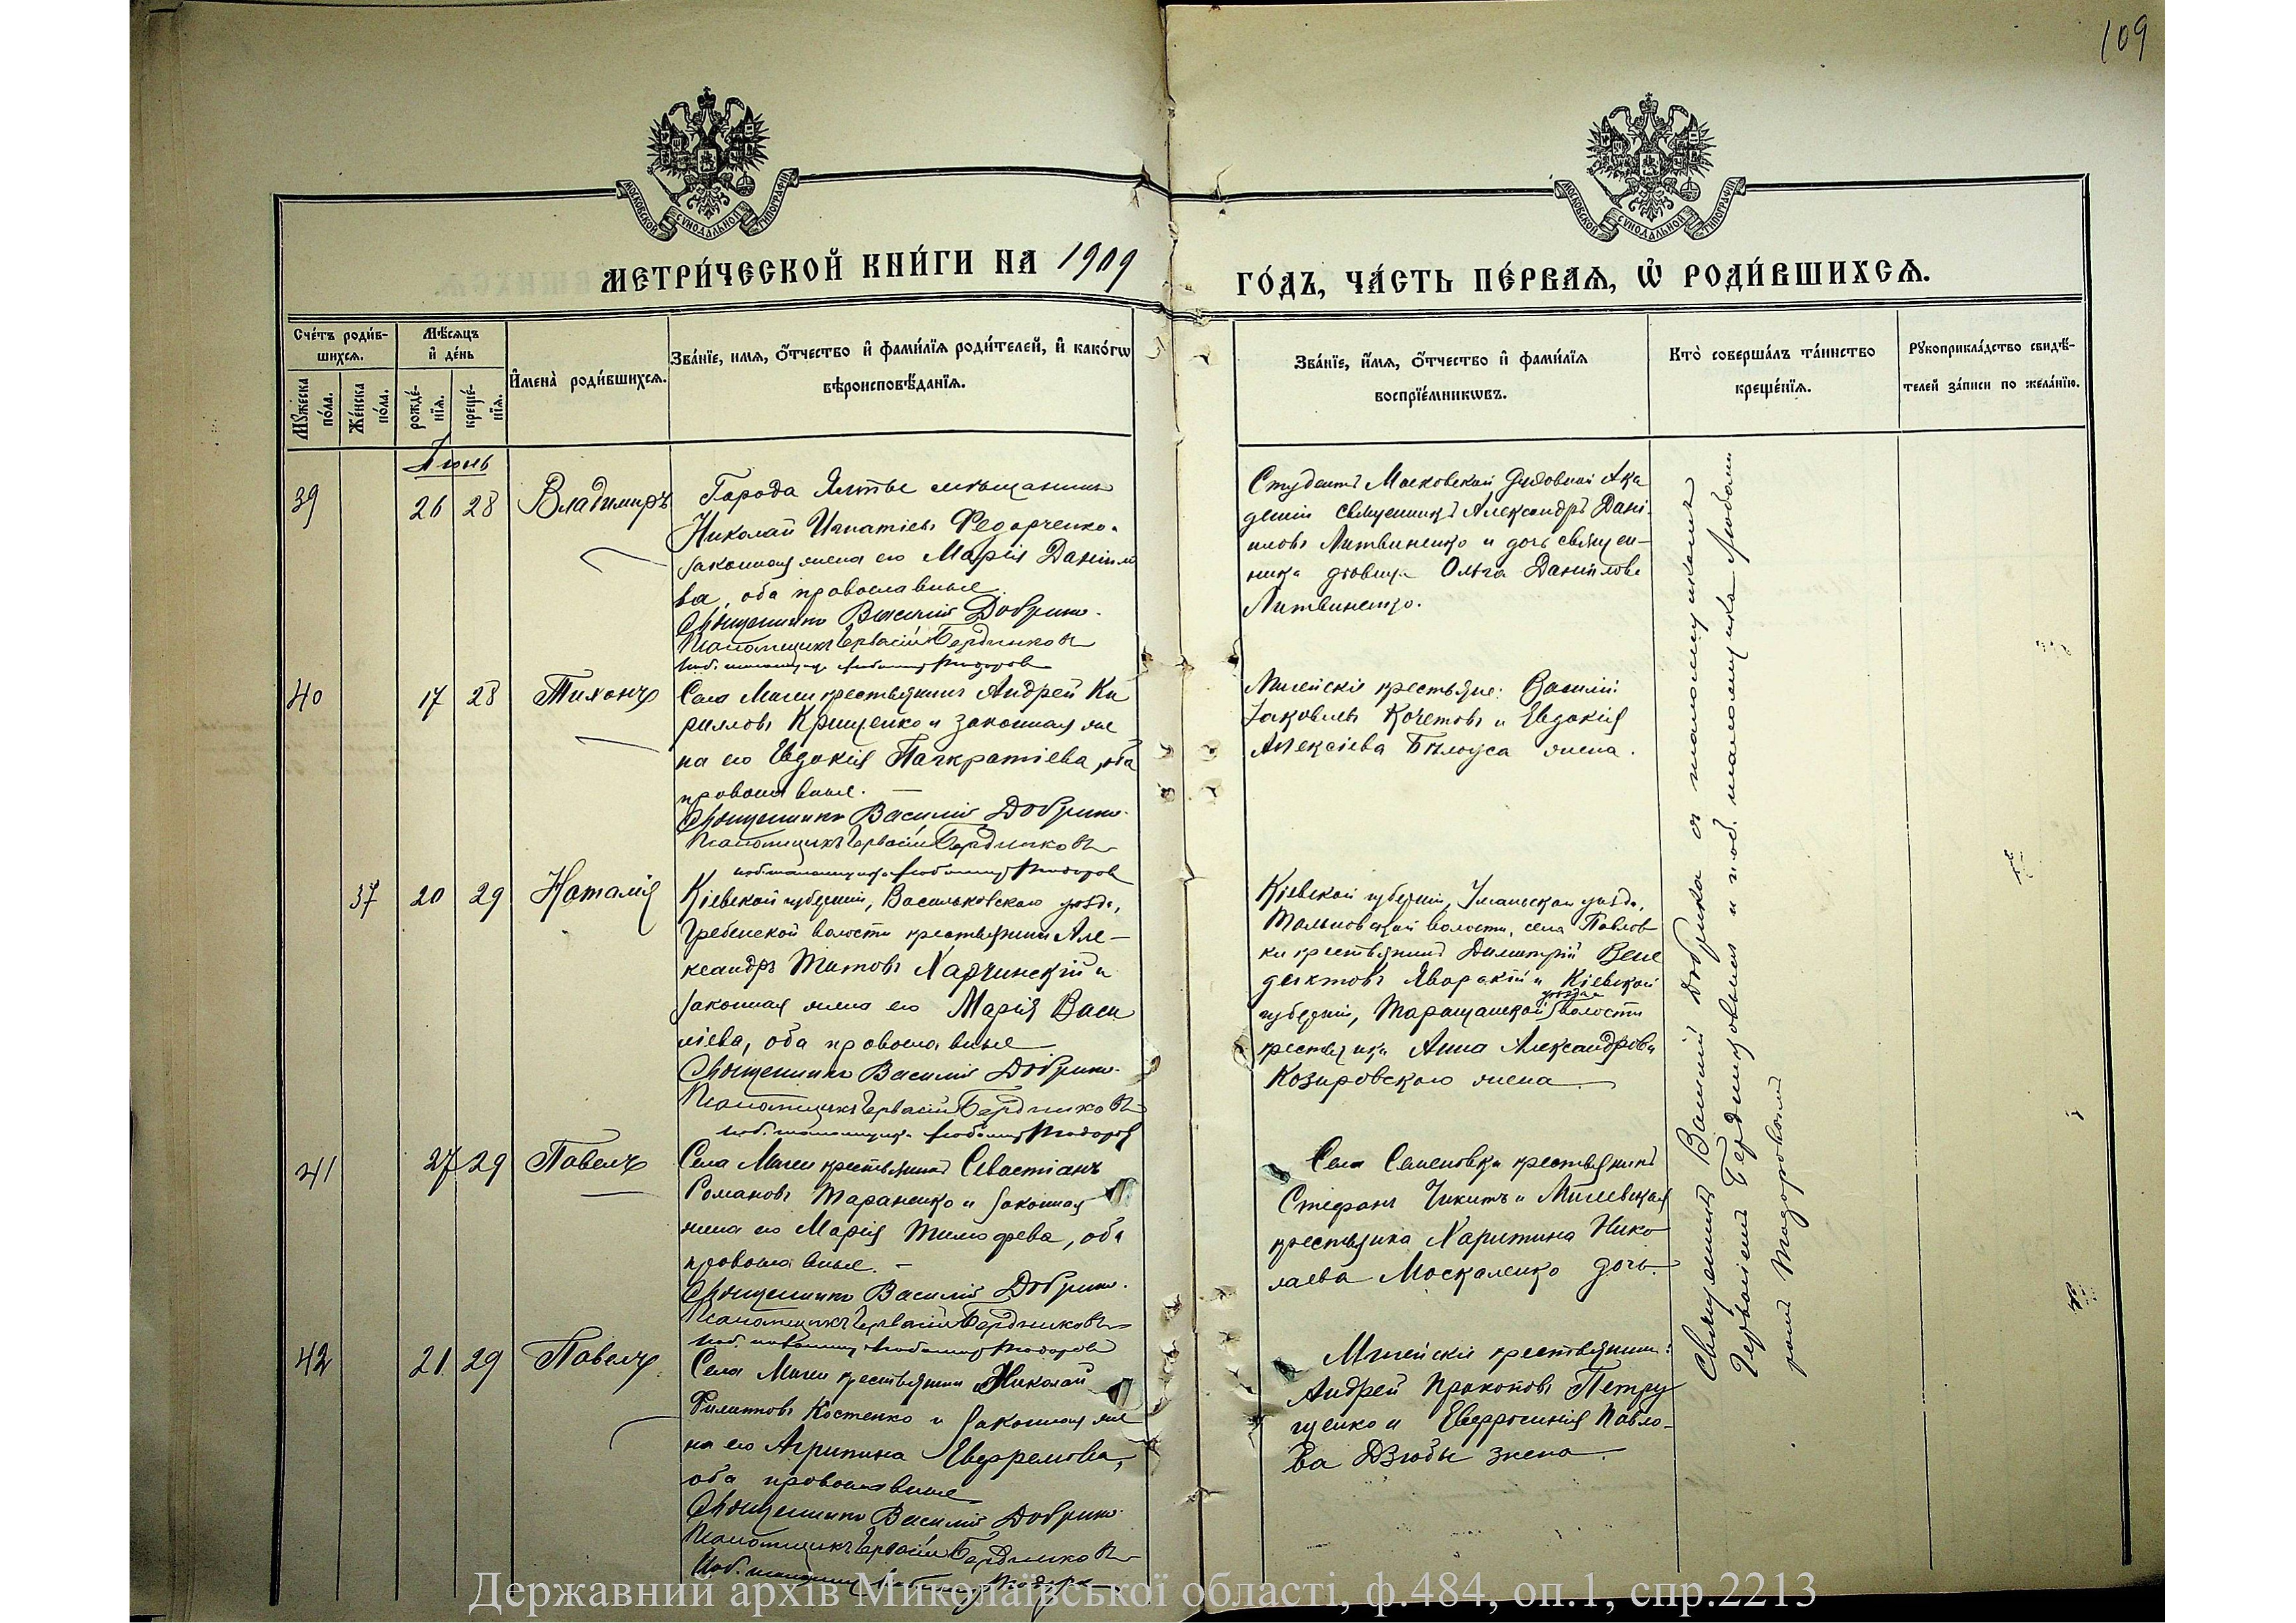 109
МОСКОВСКОЙ СѴНОДАЛЬНОЙ ТИПОГРАФІИ
МОСКОВСКОЙ СѴНОДАЛЬНОЙ ТИПОГРАФІИ
МЕТРИ́ЧЕСКОЙ КНИ́ГИ НА 1909
ГО́ДЪ, ЧА́СТЬ ПЕ́РВАѦ, Ѡ҆ РОДИ́ВШИХСѦ.
Сче́тъ роди́в-
шихсѧ.
Мꙋжеска по́ла.
Же́нска по́ла.
Мѣ́сѧцъ
и҆ де́нь
рожде́-
нїѧ.
креще́-
нїѧ.
И҆мена̀ роди́вшихсѧ.
Зва́нїе, имѧ, о҆́тчество и҆ фами́лїѧ роди́телей, и҆ како́гѡ
вѣроисповѣ́данїѧ.
Зва́нїе, и҆́мѧ, о҆́тчество и҆ фами́лїѧ
воспрїе́мникѡвъ.
Кто̀ соверша́лъ та́инство
креще́нїѧ.
Рꙋкоприкла́дство свидѣ́-
телей за́писи по жела́нїю.
Іюнь
39
26 28
Владимиръ
Города Ялты мѣщанинъ
Николай Игнатіевъ Федорченко
законная жена его Марія Даніило
ва, оба православные.
Священникъ Василій Добрик
Псаломщикъ Гервасій Бердников
Студентъ Московской Духовной Ака
деміи священникъ Александръ Дані
иловъ Литвиненко и дочь священ-
ника дѣвица Ольга Даніилова
Литвиненко.
40
17 28
Тихонъ
Села Мигеи крестьянинъ Андрей Ки
рилловъ Крищенко и законная же
на его Евдокія Панкратіева, оба
православные.
Священникъ Василій Добрик
Псаломщикъ Гервасій Бердников
Мигейскіе крестьяне: Василій
Іаковлевъ Кочетовъ и Евдокія
Алексіева Бѣлоуса жена.
37
20 29
Наталія
Кіевской губерніи, Васильковскаго уѣзда,
Гребенской волости крестьянинъ Але-
ксандръ Титовъ Харчинскій и
законная жена его Марія Васи
ліева, оба православные
Священникъ Василій Добрик
Псаломщикъ Гервасій Бердников
Кіевской губерніи, Уманскаго уѣзда,
Тальновской волости, села Павлов
ки крестьянинъ Димитрій Вене
диктовъ Яворскій и Кіевской
губерніи, Таращанской уѣзда волости
крестьянка Анна Александрова
Козыровскаго жена
41
27 29
Павелъ
Села Мигеи крестьянинъ Севастіанъ
Романовъ Тараненко и законная
жена его Марія Тимофеева, оба
православные. -
Священникъ Василій Добрик
Псаломщикъ Гервасій Бердников
Села Семеновки крестьянинъ
Стефанъ Чикитъ и Мигейская
крестьянка Харитина Нико
лаева Москаленко дочь
42
21 29
Павелъ
Села Мигеи крестьянинъ Николай
Филипповъ Костенко и законная же
на его Агрипина Евфремова,
оба православные
Священникъ Василій Добрик
Псаломщикъ Гервасій Бердников
Мигейскіе крестьяне:
Андрей Прокопов Петру
щенко и Евфросинія Павло-
ва Дзюбы жена.
Священникъ Василій Добрикъ съ псаломщикомъ
Гервасіемъ Бердниковымъ и
Державний архів Миколаївської області, ф.484, оп.1, спр.2213